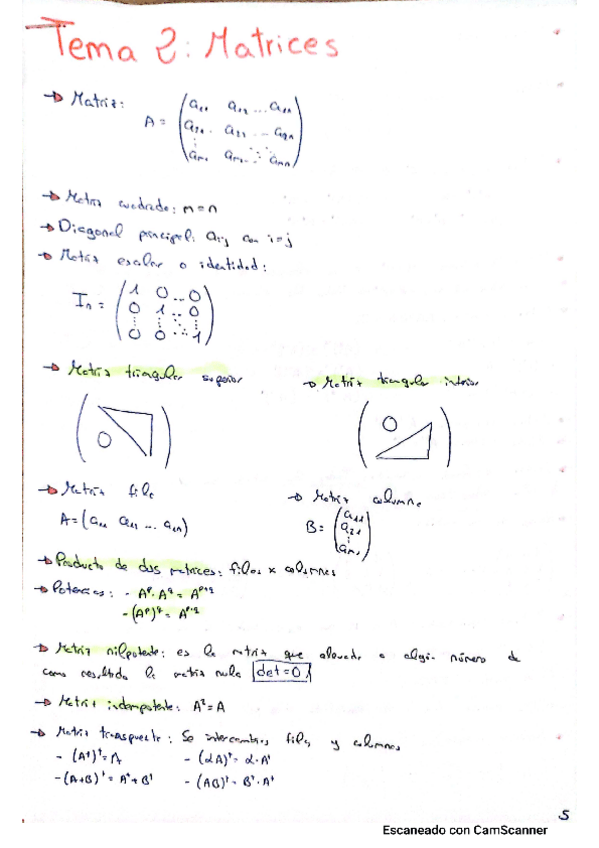 Tema 2: Matrices
→ Matriz: A = (a₁₁ a₁₁ ... a₁₁
a₂₁. a₂₂ ... a₂n
⋮ ⋱
aₘ₁ aₘ₁ ... aₘn)
→ Matriz cuadrada: m=n
→ Diagonal principal: aᵢⱼ con i=j
→ Matriz escalar o identidad:
Iₙ = (1 0 ... 0
0 1 ... 0
⋮ ⋮ ⋱ ⋮
0 0 ... 1)
→ Matriz triangular superior → Matriz triangular inferior
( 0 ) ( 0 )
→ Matriz fila → Matriz columna
A = (a₁₁ a₁₁ ... a₁n) B = (a₁₁
a₂₁
⋮
aₘ₁)
→ Producto de dos matrices: filas x columnas
→ Potencias: - Aᵖ·A^q = A^(p+q)
- (Aᵖ)^q = A^(p·q)
→ Matriz nilpotente: es la matriz que elevada a algún número da
como resultado la matriz nula det=0
→ Matriz indempotente: A²=A
→ Matriz transpuesta: Se intercambian filas y columnas
- (Aᵗ)ᵗ=A - (αA)ᵗ=α·Aᵗ
- (A+B)ᵗ=Aᵗ+Bᵗ - (AB)ᵗ=Bᵗ·Aᵗ
5
Escaneado con CamScanner